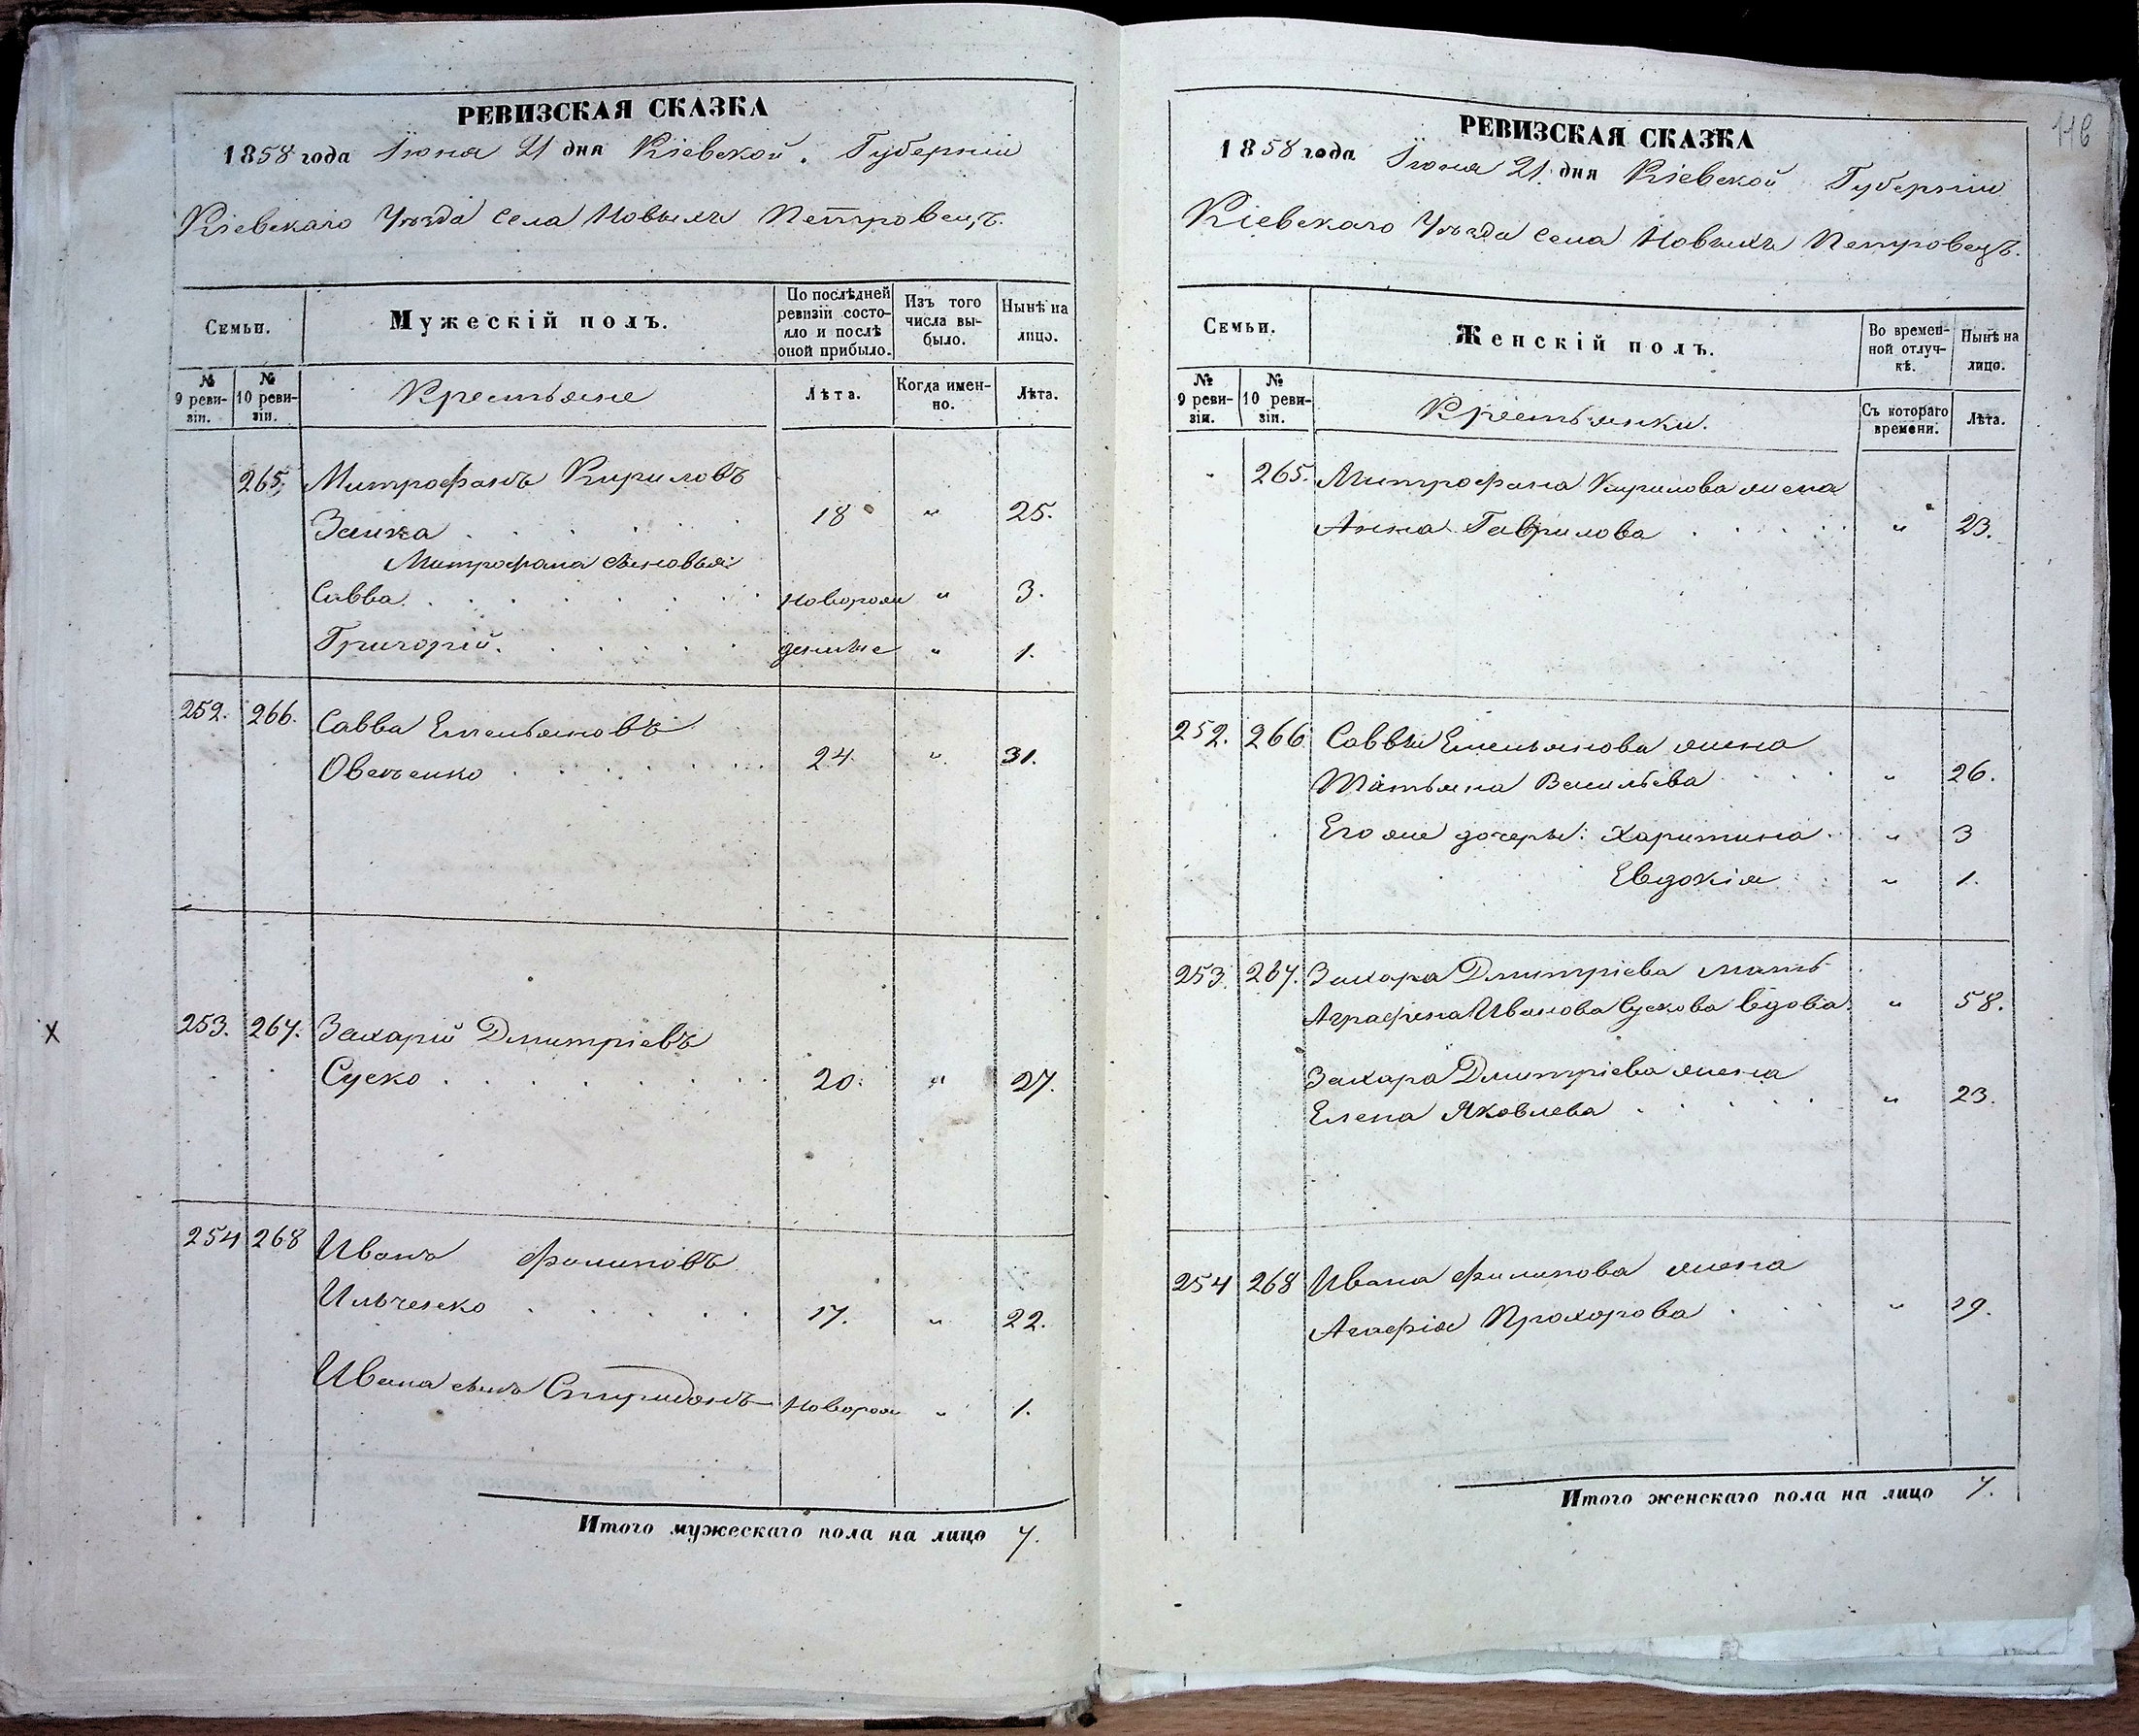 РЕВИЗСКАЯ СКАЗКА
1858 года Іюня 21 дня Кіевской. Губерніи
Кіевскаго Уѣзда села Новыхъ Петровецъ.
Семьи.
Мужескій полъ.
По послѣдней ревизіи состояло и послѣ оной прибыло.
Изъ того числа выбыло.
Нынѣ на лицо.
№ 9 ревизіи.
№ 10 ревизіи.
Крестьяне
Лѣта.
Когда именно.
Лѣта.
265. Митрофанъ Кириловъ
Заика 18 " 25.
Митрофана сыновья:
Савва новорож " 3.
Григорій. денные " 1.
252. 266. Савва Емельяновъ
Овсѣенко 24. " 31.
х 253. 267. Захарій Дмитріевъ
Суско 20. " 27.
254 268 Иванъ Филиповъ
Ильченко 17. " 22.
Ивана сынъ Спиридонъ новорож " 1.
Итого мужескаго пола на лицо 7.
116
РЕВИЗСКАЯ СКАЗКА
1858 года Іюня 21. дня Кіевской Губерніи
Кіевскаго Уѣзда села Новыхъ Петровецъ.
Семьи.
Женскій полъ.
Во временной отлучкѣ.
Нынѣ на лицо.
№ 9 ревизіи.
№ 10 ревизіи.
Крестьянки.
Съ котораго времени.
Лѣта.
" 265. Митрофана Кирилова жена
Анна Гаврилова " 23.
252. 266 Саввы Емельянова жена
Татьяна Васильева " 26.
Его же дочери: Харитина " 3
Евдокія " 1.
253. 267. Захара Дмитріева мать
Аграфена Иванова Сускова вдова " 58.
Захара Дмитріева жена
Елена Яковлева " 23.
254 268 Ивана Филипова жена
Агафія Прохорова " 19.
Итого женскаго пола на лицо 7.